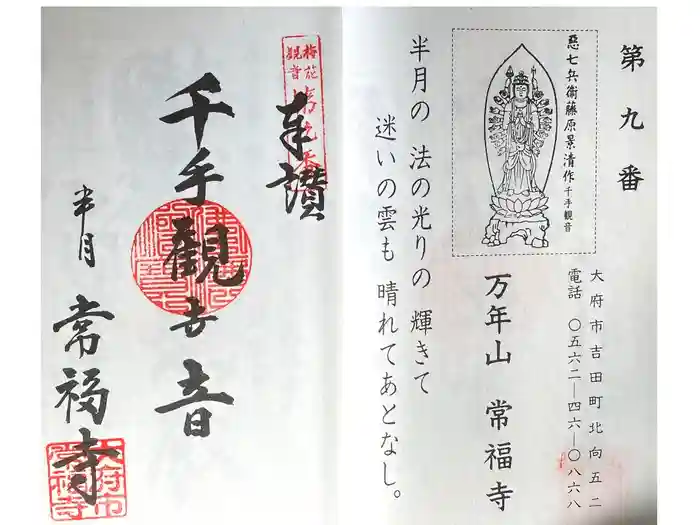 第九番
大府市吉田町北向五二
電話 〇五六二―四六―〇八六八
悪七兵衛藤原景清作千手観音
万年山 常福寺
半月の 法の光りの 輝きて
迷いの雲も 晴れてあとなし。
梅花
観音
第九番
奉讃
千手観世音
半月 常福寺
大府市
常福寺